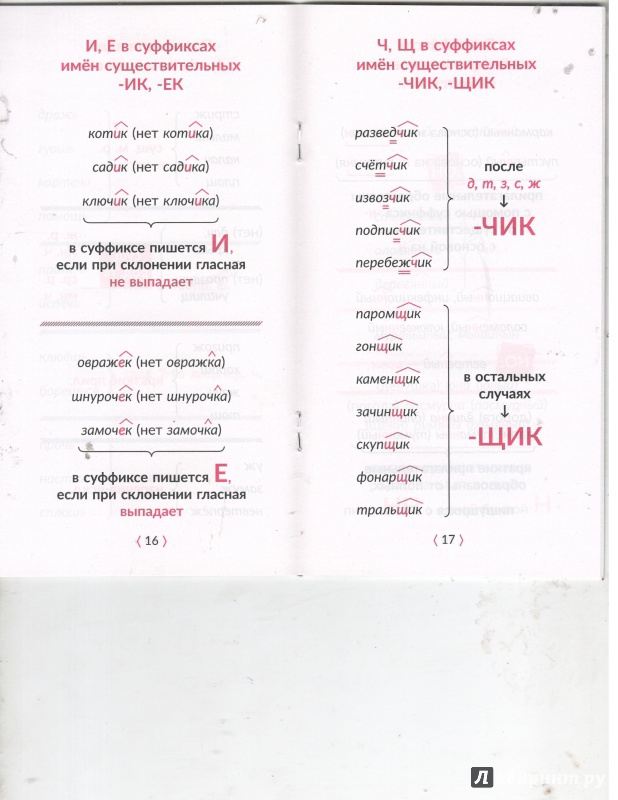 И, Е в суффиксах
имён существительных
-ИК, -ЕК
котик (нет котика)
садик (нет садика)
ключик (нет ключика)
в суффиксе пишется И,
если при склонении гласная
не выпадает
овражек (нет овражка)
шнурочек (нет шнурочка)
замочек (нет замочка)
в суффиксе пишется Е,
если при склонении гласная
выпадает
16
Ч, Щ в суффиксах
имён существительных
-ЧИК, -ЩИК
разведчик
счётчик
извозчик
подписчик
перебежчик
после
д, т, з, с, ж
-ЧИК
паромщик
гонщик
каменщик
зачинщик
скупщик
фонарщик
тральщик
в остальных
случаях
-ЩИК
17